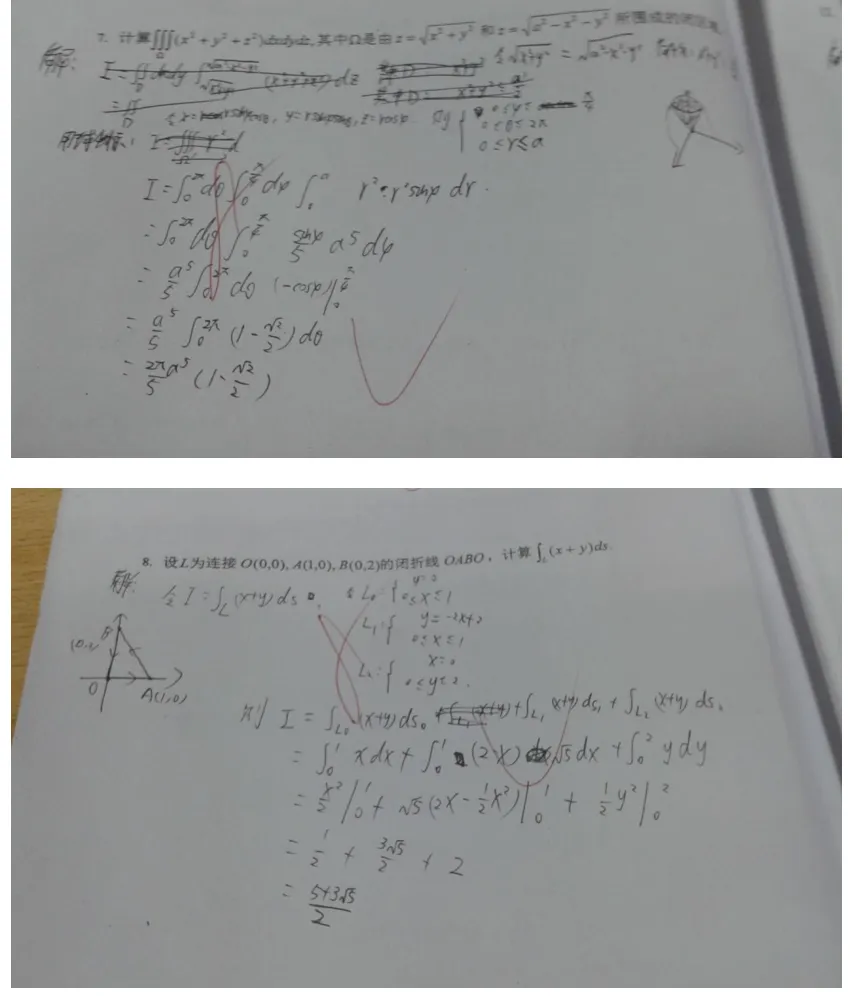 7. 计算∭_Ω(x²+y²+z²)dxdydz, 其中Ω是由z=√(x²+y²) 和z=√(a²-x²-y²) 所围成的闭区
解:
令√(x²+y²) = √(a²-x²-y²)
0≤φ≤π/4
0≤θ≤2π
0≤r≤a
I=∫₀^{2π}dθ∫₀^{π/4}dφ∫₀^a r²·r²sinφ dr.
=∫₀^{2π}dθ∫₀^{π/4} sinφ/5 a⁵dφ
= a⁵/5 ∫₀^{2π}dθ (-cosφ)|₀^{π/4}
= a⁵/5 ∫₀^{2π}(1-√2/2)dθ
= 2π/5 a⁵(1-√2/2)
8. 设L为连接O(0,0), A(1,0), B(0,2)的闭折线OABO，计算∫_L(x+y)ds.
解: 令I=∫_L(x+y)ds
L₀:{ y=0
0≤x≤1
L₁:{ y=-2x+2
0≤x≤1
L₂:{ x=0
0≤y≤2.
B
O
A(1,0)
则 I = ∫_{L₀}(x+y)ds₀ +∫_{L₁}(x+y)ds₁+∫_{L₂}(x+y)ds₂
= ∫₀¹xdx+∫₀¹(2-x)√5dx+∫₀²ydy
= x²/2|₀¹+√5(2x-1/2x²)|₀¹+1/2y²|₀²
= 1/2 + 3√5/2 + 2
= (5+3√5)/2